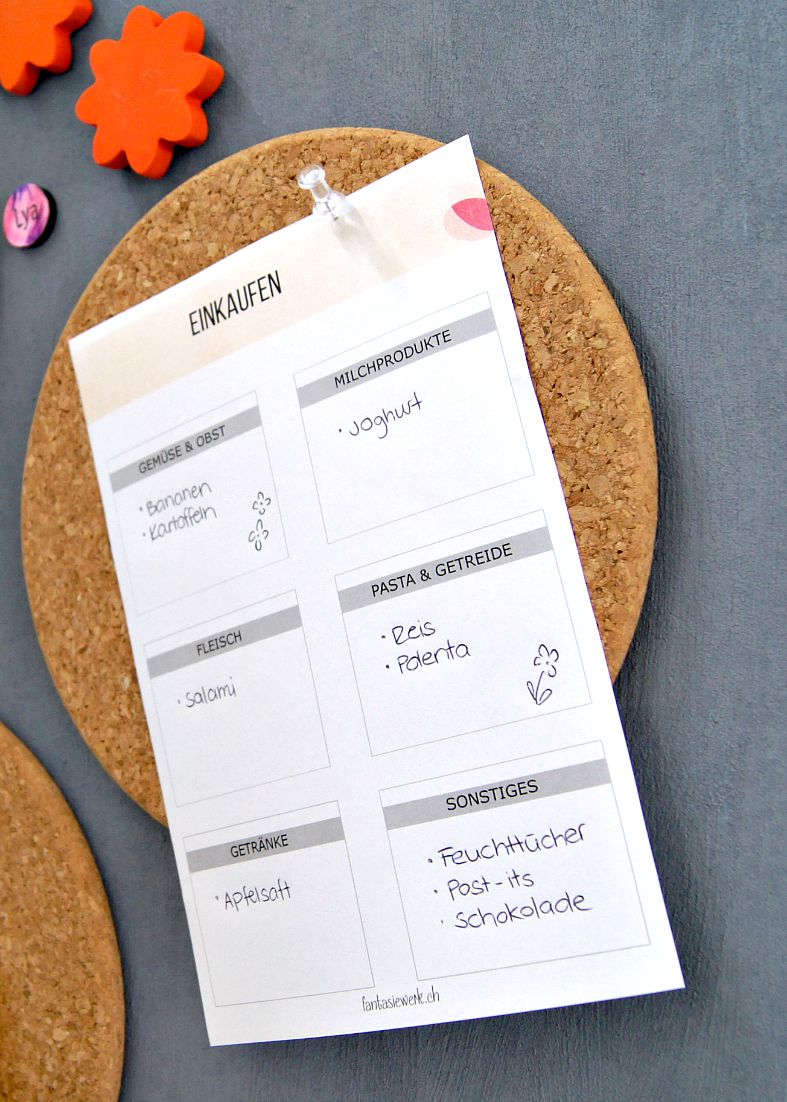 Lya
EINKAUFEN
GEMÜSE & OBST
• Bananen
• Kartoffeln
MILCHPRODUKTE
• Joghurt
FLEISCH
• Salami
PASTA & GETREIDE
• Reis
• Polenta
GETRÄNKE
• Apfelsaft
SONSTIGES
• Feuchttücher
• Post-its
• Schokolade
fantasiewerk.ch